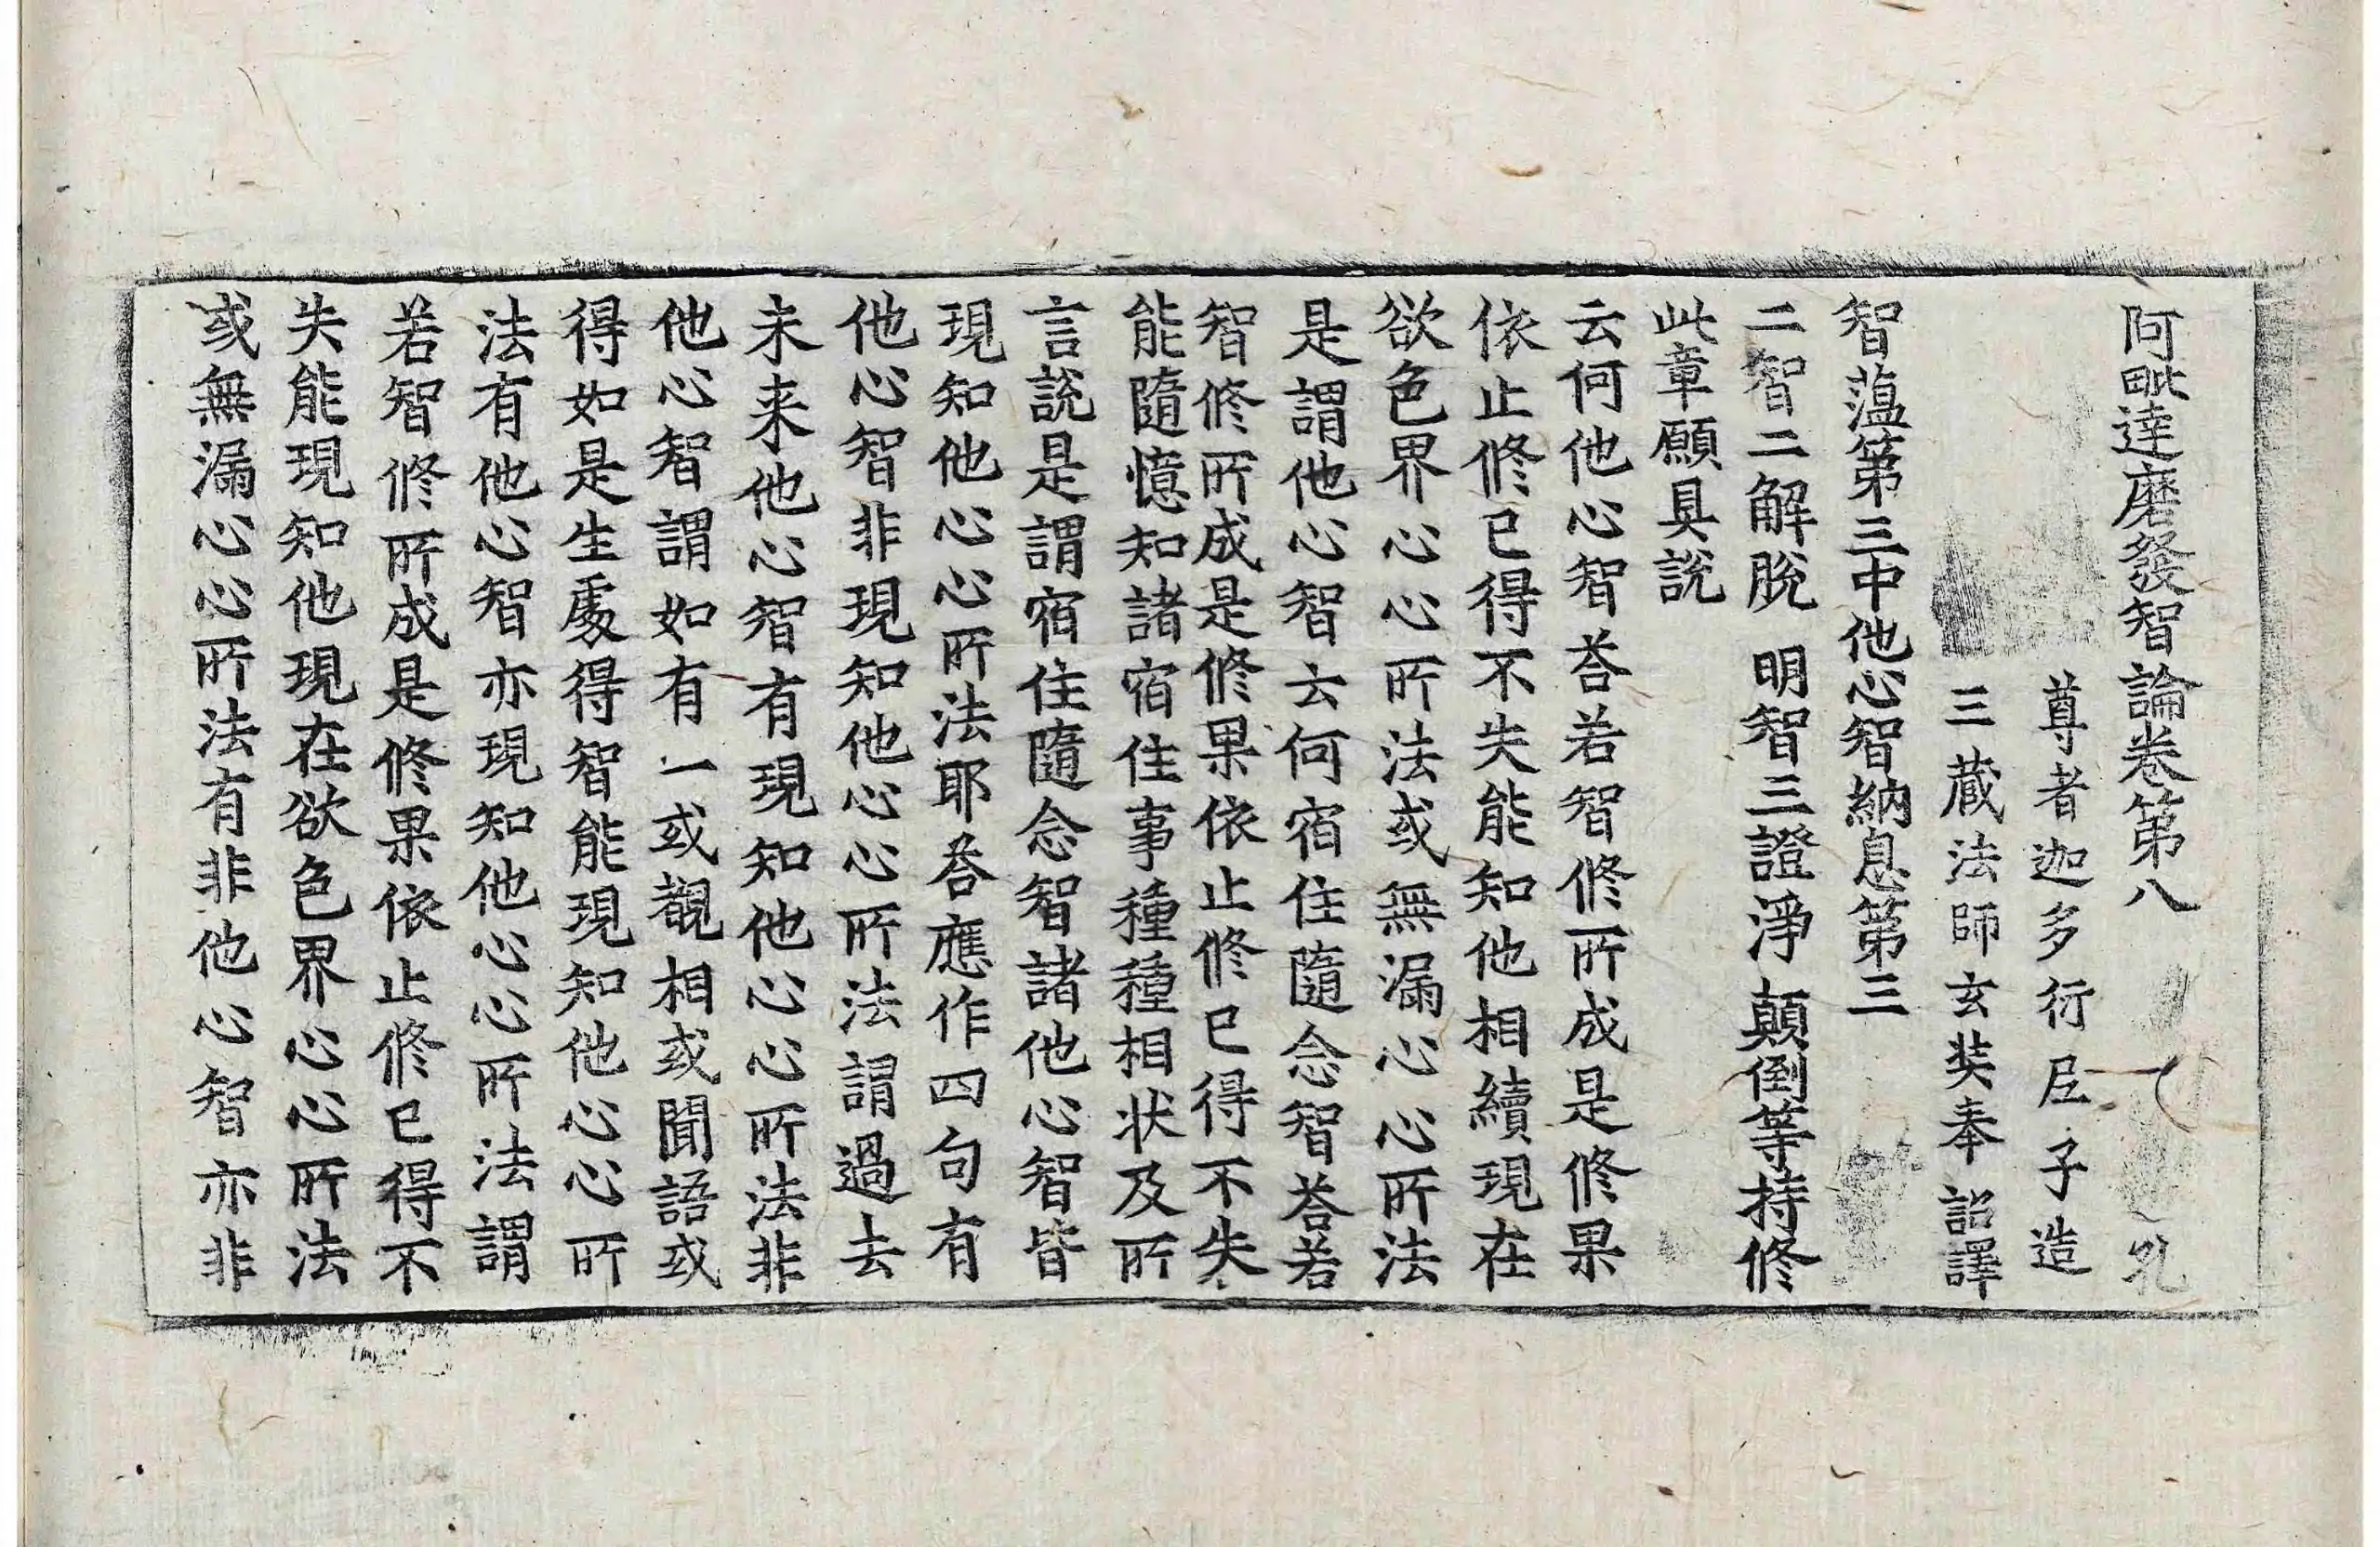 阿毗達磨發智論卷第八
尊者迦多衍尼子造
三藏法師玄奘奉 詔譯
智蘊第三中他心智納息第三
二智二解脫 明智三證淨 顛倒等持修
此章願具說
云何他心智荅若智修所成是修果
依止修已得不失能知他相續現在
欲色界心心所法或無漏心心所法
是謂他心智云何宿住隨念智荅若
智修所成是修果依止修已得不失
能隨憶知諸宿住事種種相狀及所
言說是謂宿住隨念智諸他心智皆
現知他心心所法耶荅應作四句有
他心智非現知他心心所法謂過去
未来他心智有現知他心心所法非
他心智謂如有一或觀相或聞語或
得如是生處得智能現知他心心所
法有他心智亦現知他心心所法謂
若智修所成是修果依止修已得不
失能現知他現在欲色界心心所法
或無漏心心所法有非他心智亦非